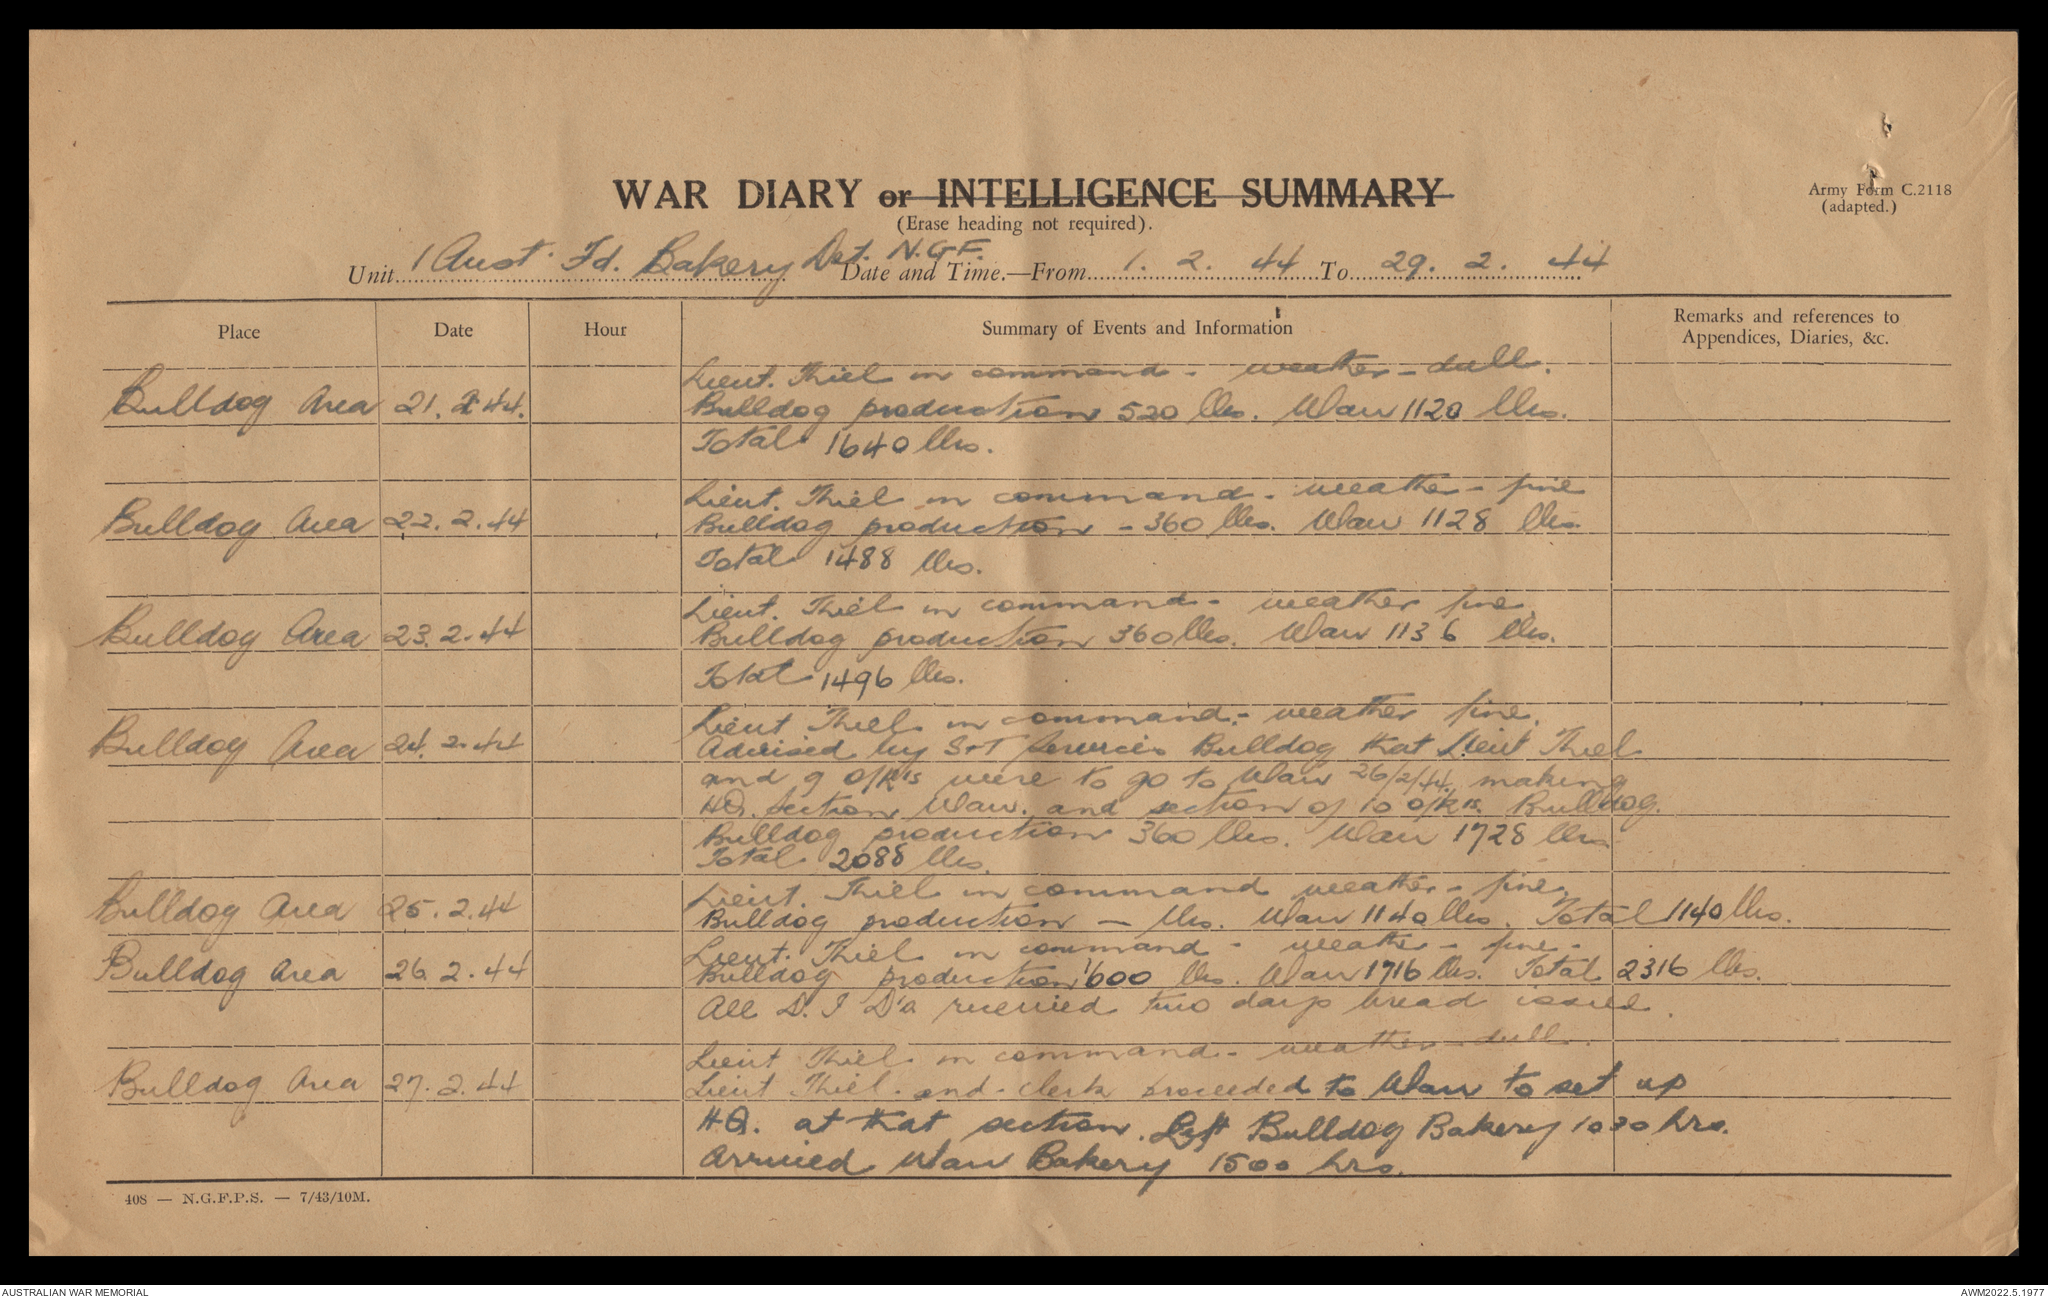 WAR DIARY or INTELLIGENCE SUMMARY
(Erase heading not required).
Army Form C.2118
(adapted.)
Unit 1 Aust. Fd. Bakery Det. N.G.F. Date and Time.—From 1. 2. 44 To 29. 2. 44
Place Date Hour Summary of Events and Information Remarks and references to
Appendices, Diaries, &c.
Lieut. Thiel in command - weather - dull.
Bulldog Area 21. 2. 44. Bulldog production 520 lbs. Wau 1120 lbs.
Total 1640 lbs.
Lieut. Thiel in command - weather - fine
Bulldog Area 22. 2. 44 Bulldog production - 360 lbs. Wau 1128 lbs.
Total 1488 lbs.
Lieut. Thiel in command - weather fine.
Bulldog Area 23. 2. 44 Bulldog production 360 lbs. Wau 1136 lbs.
Total 1496 lbs.
Lieut Thiel in command - weather fine.
Bulldog Area 24. 2. 44 Advised by S & T Services Bulldog that Lieut Thiel
and 9 o/R's were to go to Wau 26/2/44. making
H.Q. section Wau. and section of 10 o/R's. Bulldog.
Bulldog production 360 lbs. Wau 1728 lbs
Total 2088 lbs.
Lieut. Thiel in command weather - fine.
Bulldog Area 25. 2. 44 Bulldog production — lbs. Wau 1140 lbs. Total 1140 lbs.
Lieut. Thiel in command - weather - fine -
Bulldog Area 26. 2. 44 Bulldog production 600 lbs. Wau 1716 lbs. Total 2316 lbs.
All D. I D's received two days bread issue.
Lieut Thiel in command - weather - dull.
Bulldog Area 27. 2. 44 Lieut Thiel. and. clerk proceeded to Wau to set up
H.Q. at that section. Left Bulldog Bakery 1030 hrs.
Arrived Wau Bakery 1500 hrs.
408 — N.G.F.P.S. — 7/43/10M.
AUSTRALIAN WAR MEMORIAL
AWM2022.5.1977